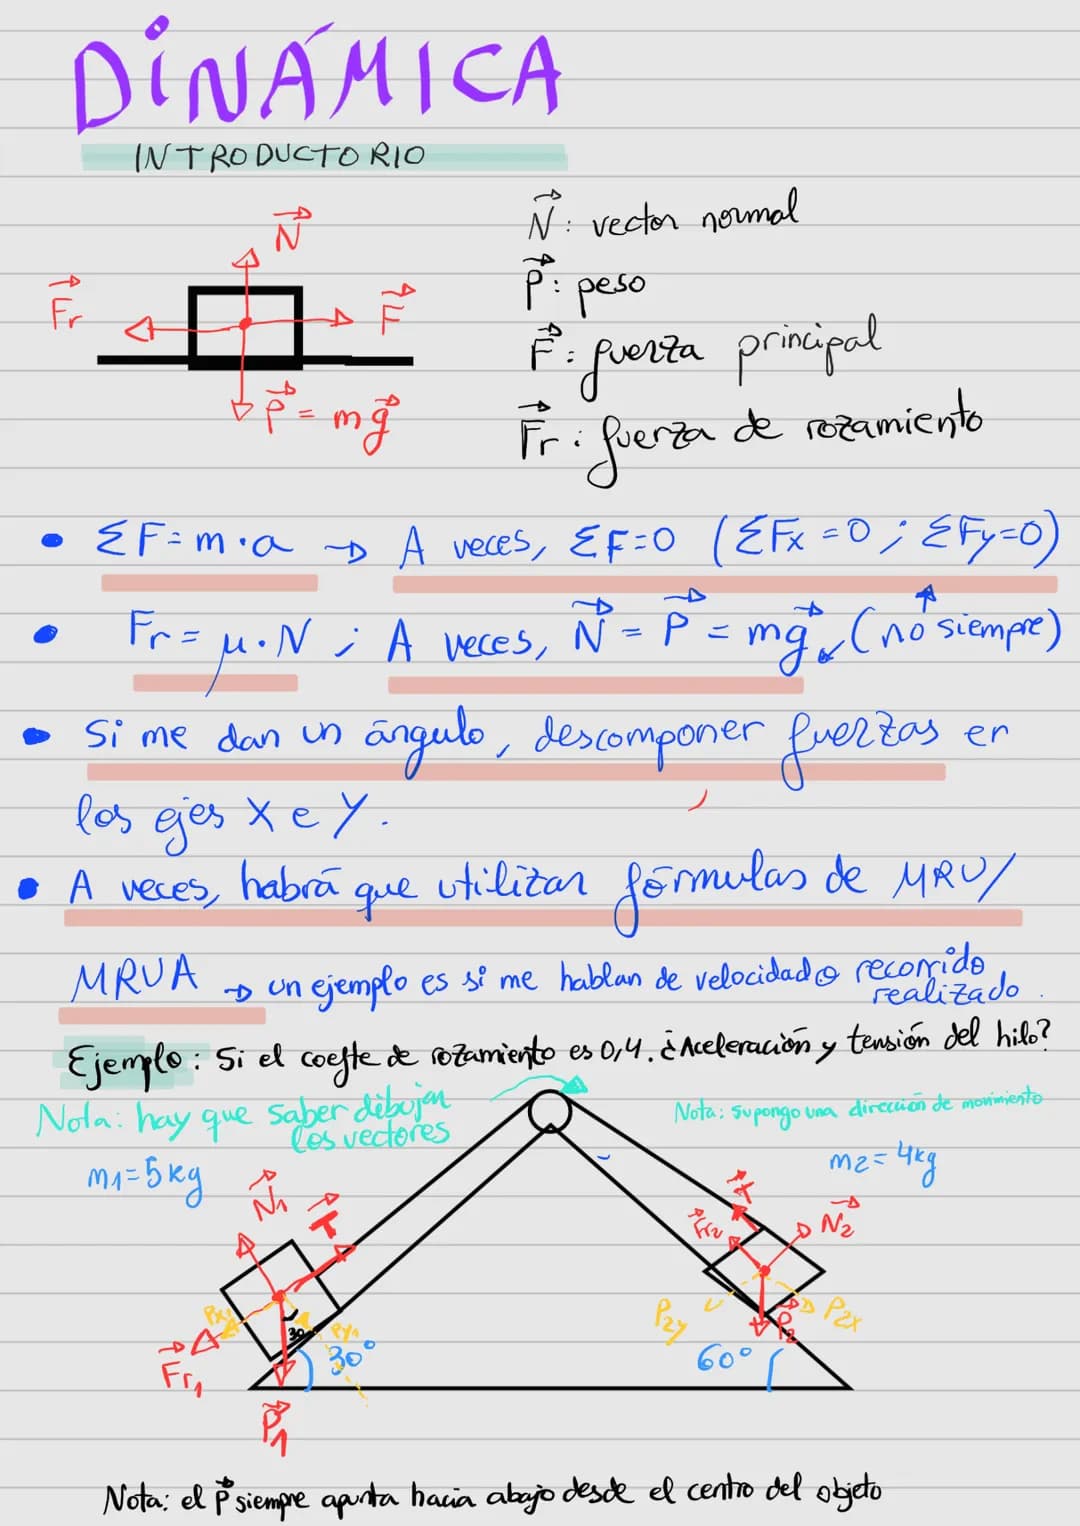 DINÁMICA
INTRODUCTORIO
N⃗
N⃗: vector normal
F⃗r
F⃗
P⃗: peso
F⃗: fuerza principal
P⃗ = mg⃗
F⃗r: fuerza de rozamiento
• ΣF = m·a → A veces, ΣF=0 (ΣFx=0; ΣFy=0)
• Fr = μ·N ; A veces, N⃗ = P⃗ = mg⃗ (no siempre)
• Si me dan un ángulo, descomponer fuerzas en
los ejes X e Y.
• A veces, habrá que utilizar fórmulas de MRU/
MRUA → un ejemplo es si me hablan de velocidad o recorrido
realizado.
Ejemplo: Si el coefte de rozamiento es 0,4. ¿Aceleración y tensión del hilo?
Nota: hay que saber dibujar
los vectores
Nota: supongo una dirección de movimiento
m1=5kg
m2=4kg
N⃗1
T⃗
T⃗
F⃗r2
N⃗2
Px1
30
Py1
30°
F⃗r1
P⃗1
P2y
P⃗2
P2x
60°
Nota: el P⃗ siempre apunta hacia abajo desde el centro del objeto